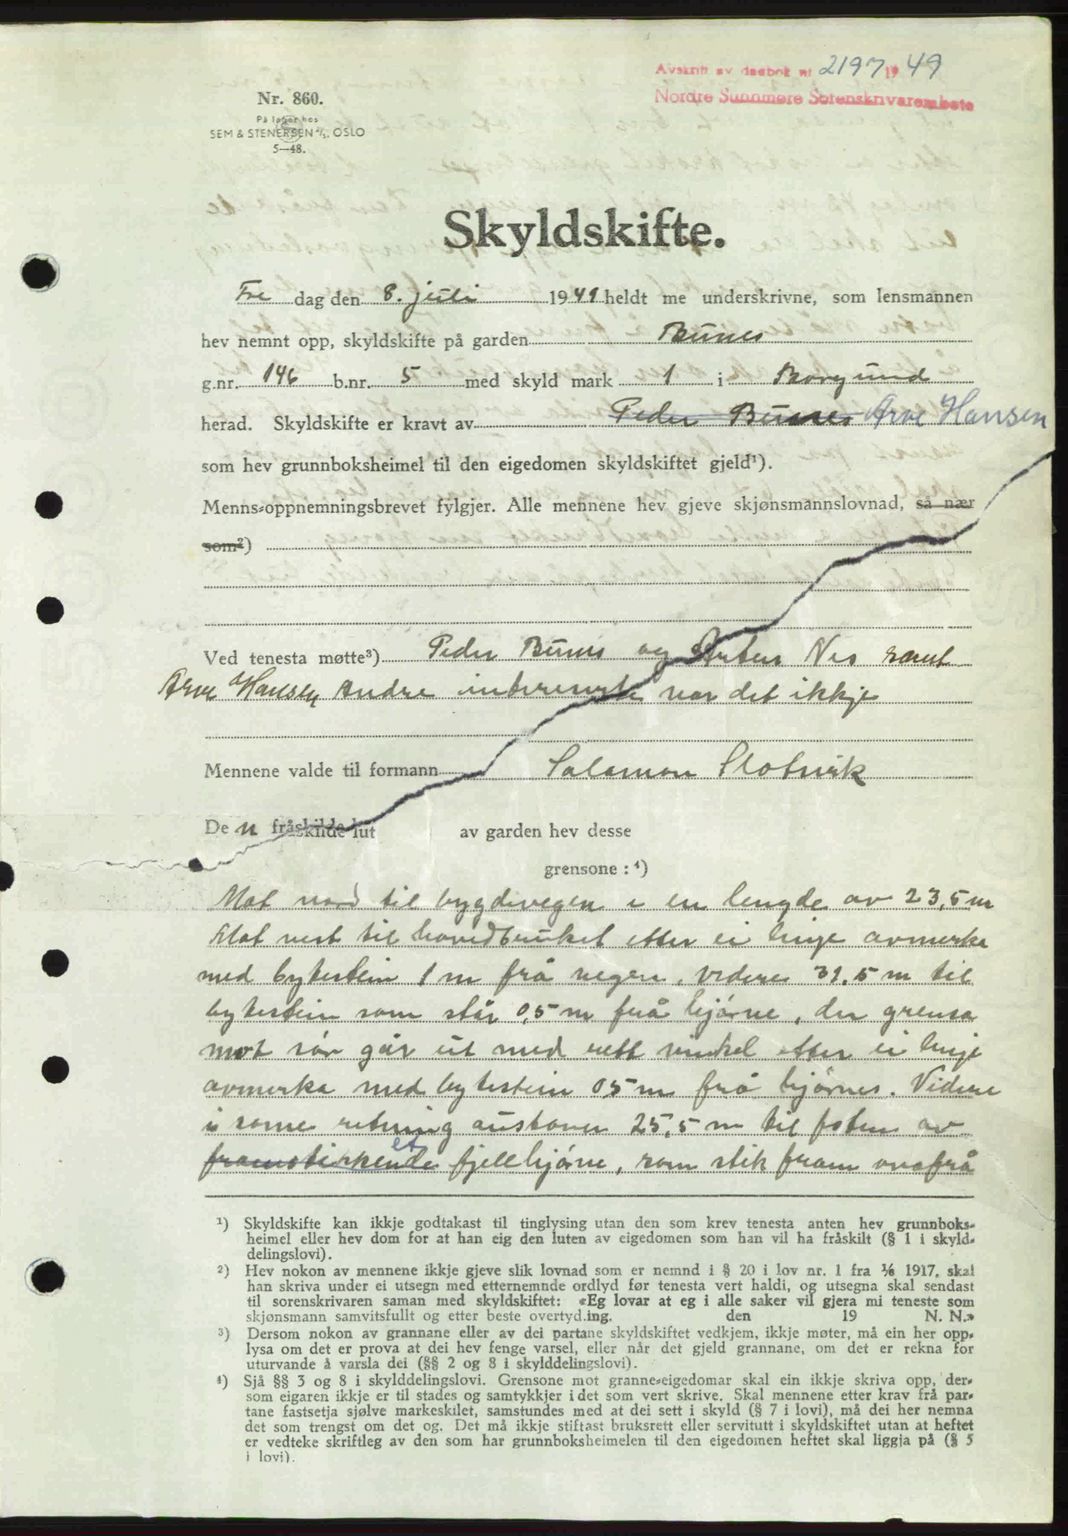 Avskrift av dagbok nr 2197 19 49
Nordre Sunnmøre Sorenskrivarembete
Nr. 860.
På lager hos
SEM & STENERSEN A/S. OSLO
5—48.
Skyldskifte.
Fre dag den 8. juli 1949 heldt me underskrivne, som lensmannen
hev nemnt opp, skyldskifte på garden Bunes
g.nr. 146 b.nr. 5 med skyld mark 1 i Borgund
herad. Skyldskifte er kravt av Peder Bunes Arve Hansen
som hev grunnboksheimel til den eigedomen skyldskiftet gjeld¹).
Menns-oppnemningsbrevet fylgjer. Alle mennene hev gjeve skjønsmannslovnad, så nær
som²)
Ved tenesta møtte³) Peder Bunes og Nes samt
Arve Hansen Andre interesserte var det ikkje
Mennene valde til formann Salamon Slotsvik
De n fråskilde lut av garden hev desse
grensone : ⁴)
Mot nord til bygdevegen i en lengde av 23,5 m
Mot vest til hovedbruket etter ei linje avmerka
med bytestein 1 m frå vegen, videre 31.5 m til
bytestein som står 0,5 m frå hjørne, der grensa
mot sør går ut med rett vinkel etter ei linje
avmerka med bytestein 05 m frå hjørnes. Videre
i same retning austover 25,5 m til foten av
et fjellhjørne, som stik fram ovafrå
¹) Skyldskifte kan ikkje godtakast til tinglysing utan den som krev tenesta anten hev grunnboks-
heimel eller hev dom for at han eig den luten av eigedomen som han vil ha fråskilt (§ 1 i skyld-
delingslovi).
²) Hev nokon av mennene ikkje gjeve slik lovnad som er nemnd i § 20 i lov nr. 1 fra ⅙ 1917, skal
han skriva under ei utsegn med etternemnde ordlyd før tenesta vert haldi, og utsegna skal sendast
til sorenskrivaren saman med skyldskiftet: «Eg lovar at eg i alle saker vil gjera mi teneste som
skjønsmann samvitsfullt og etter beste overtyd.ing. den 19 N. N.»
³) Dersom nokon av grannane eller av dei partane skyldskiftet vedkjem, ikkje møter, må ein her opp-
lysa om det er prova at dei hev fenge varsel, eller når det gjeld grannane, om det er rekna for
uturvande å varsla dei (§§ 2 og 8 i skylddelingslovi).
⁴) Sjå §§ 3 og 8 i skylddelingslovi. Grensone mot granne-eigedomar skal ein ikkje skriva opp, der-
som eigaren ikkje er til stades og samtykkjer i det som vert skrive. Skal mennene etter krav frå par-
tane fastsetja sjølve markeskilet, samstundes med at dei sett i skyld (§ 7 i lovi), må dei her nemna
det som trengst om det og. Det må ikkje stiftast bruksrett eller servitutt i skyldskiftet utan at heftet
er vedteke skriftleg av den som har grunnboksheimelen til den eigedomen heftet skal liggja på (§ 5
i lovi).